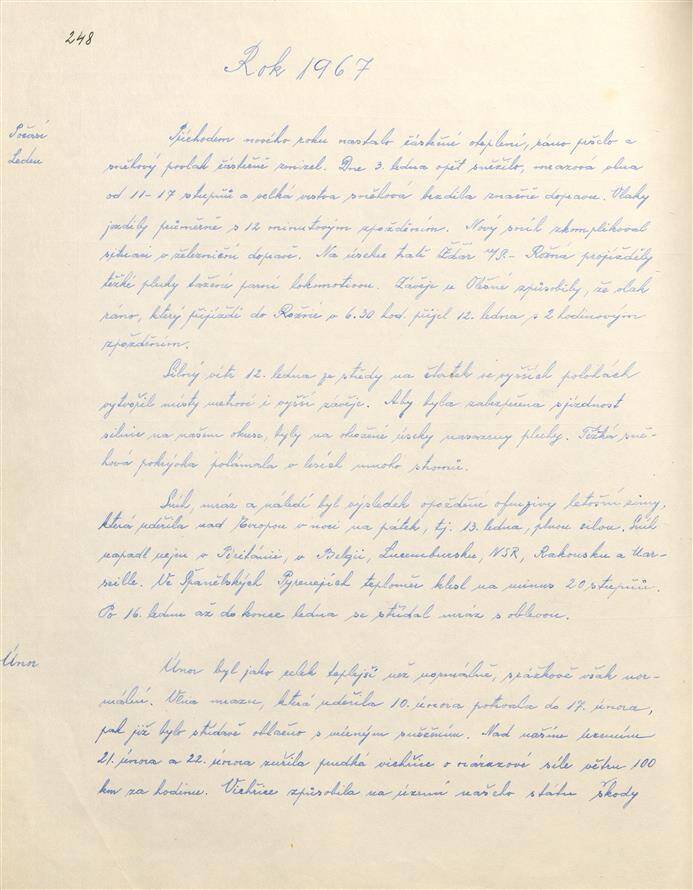 248
Rok 1967
Počasí
Leden
Příchodem nového roku nastalo částečné oteplení, ráno pršelo a
sněhový poprak částečně zmizel. Dne 3. ledna opět sněžilo, mrazová vlna
od 11-17 stupňů a velká vrstva sněhová brzdila značně dopravu. Vlaky
jezdily průměrně s 12 minutovým zpožděním. Nový sníh zkomplikoval
situaci v železniční dopravě. Na úseku trati Žďár n/S.- Rožná projížděly
těžké pluhy tažené parní lokomotivou. Závěje u Olešné způsobily, že vlak
ráno, který přijíždí do Rožné v 6.30 hod. přijel 12. ledna s 2 hodinovým
zpožděním.
Silný vítr 12. ledna ze středy na čtvrtek ve vyšších polohách
vytvořil místy metrové i vyšší závěje. Aby byla zabezpečena sjízdnost
silnic na našem okrese, byly na ohrožené úseky nasazeny pluhy. Těžká sně-
hová pokrývka polámala v lesích mnoho stromů.
Sníh, mráz a náledí byl výsledek opožděné ofenzivy letošní zimy,
která udeřila nad Evropou v noci na pátek, tj. 13. ledna, plnou silou. Sníh
napadl nejen v Británii, v Belgii, Luxembursku, NSR, Rakousku a Mar-
seille. Ve Španělských Pyrenejích teploměr klesl na minus 20 stupňů.
Po 16. lednu až do konce ledna se střídal mráz s oblevou.
Únor
Únor byl jako celek teplejší než normálně, srážkově však nor-
mální. Vlna mrazu, která udeřila 10. února potrvala do 17. února,
pak již bylo střídavě oblačno s mírným sněžením. Nad naším územím
21. února a 22. února zuřila prudká vichřice o nárazové síle větru 100
km za hodinu. Vichřice způsobila na území našeho státu škody